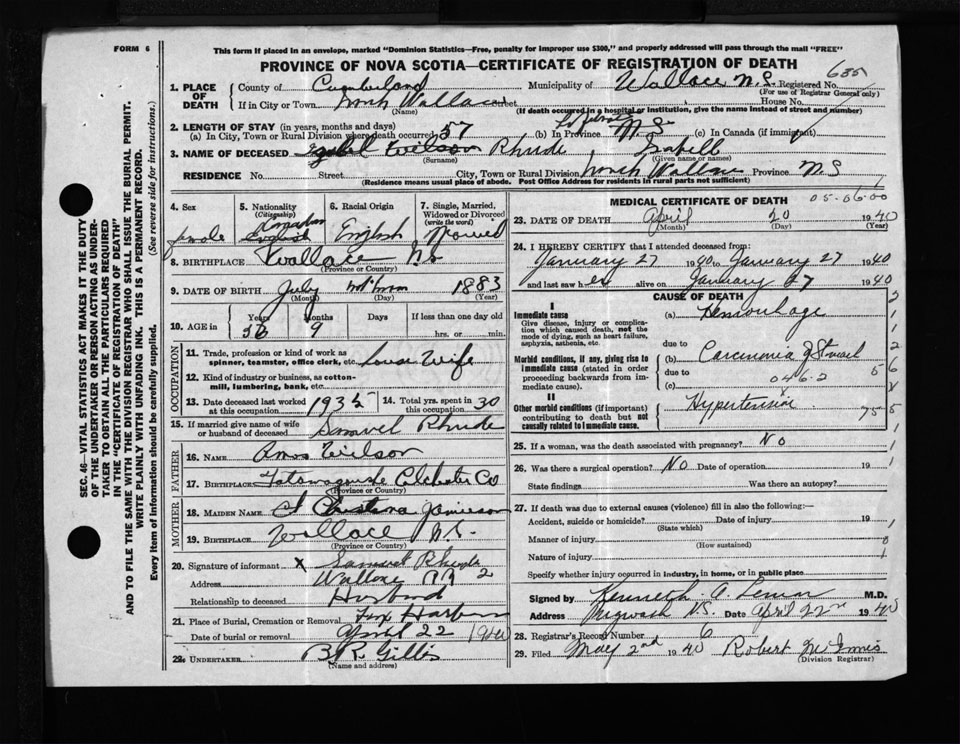 FORM 6
This form if placed in an envelope, marked "Dominion Statistics—Free, penalty for improper use $300," and properly addressed will pass through the mail "FREE"
PROVINCE OF NOVA SCOTIA—CERTIFICATE OF REGISTRATION OF DEATH
SEC. 46—VITAL STATISTICS ACT MAKES IT THE DUTY
OF THE UNDERTAKER OR PERSON ACTING AS UNDER-
TAKER TO OBTAIN ALL THE PARTICULARS REQUIRED
IN THE "CERTIFICATE OF REGISTRATION OF DEATH"
AND TO FILE THE SAME WITH THE DIVISION REGISTRAR WHO SHALL ISSUE THE BURIAL PERMIT.
WRITE PLAINLY WITH UNFADING INK. THIS IS A PERMANENT RECORD.
Every item of information should be carefully supplied. (See reverse side for instructions.)
1. PLACE OF DEATH County of Cumberland Municipality of Wallace N.S. Registered No.
(For use of Registrar General only)
If in City or Town North Wallace Street House No.
(Name) (If death occurred in a hospital or institution, give the name instead of street and number)
2. LENGTH OF STAY (in years, months and days)
(a) In City, Town or Rural Division where death occurred 57 (b) In Province N.S. (c) In Canada (if immigrant)
3. NAME OF DECEASED Wilson Rhude Isabell
(Surname) (Given name or names)
RESIDENCE No. Street City, Town or Rural Division North Wallace Province N.S
(Residence means usual place of abode. Post Office Address for residents in rural parts not sufficient)
4. Sex female
5. Nationality (Citizenship) Canadian English
6. Racial Origin English
7. Single, Married, Widowed or Divorced (write the word) Married
8. BIRTHPLACE Wallace N.S.
(Province or Country)
9. DATE OF BIRTH July 1883
(Month) (Day) (Year)
10. AGE in Years 56 Months 9 Days If less than one day old
hrs. or min.
OCCUPATION
11. Trade, profession or kind of work as
spinner, teamster, office clerk, etc. house Wife
12. Kind of industry or business, as cotton-
mill, lumbering, bank, etc.
13. Date deceased last worked at this occupation 1935 14. Total yrs. spent in this occupation 30
15. If married give name of wife
or husband of deceased Samuel Rhude
FATHER
16. NAME Amos Wilson
17. BIRTHPLACE Tatamagouche Colchester Co
(Province or Country)
MOTHER
18. MAIDEN NAME Christina Jamieson
19. BIRTHPLACE Wallace N.S.
(Province or Country)
20. Signature of informant X Samuel Rhude
Address Wallace RR 2
Relationship to deceased Husband
21. Place of Burial, Cremation or Removal Fox Harbour
Date of burial or removal April 22 1940
22. UNDERTAKER B.R. Gillis
(Name and address)
MEDICAL CERTIFICATE OF DEATH
05-06-00
23. DATE OF DEATH April 20 1940
(Month) (Day) (Year)
24. I HEREBY CERTIFY that I attended deceased from:
January 27 1940 to January 27 1940
and last saw her alive on January 27 1940
CAUSE OF DEATH
I
Immediate cause
Give disease, injury or complica-
tion which caused death, not the
mode of dying, such as heart failure,
asphyxia, asthenia, etc.
(a) Hemorrhage
due to
Morbid conditions, if any, giving rise to
immediate cause (stated in order
proceeding backwards from im-
mediate cause).
(b) Carcinoma of Stomach
due to
(c) 046.2
II
Other morbid conditions (if important)
contributing to death but not
causally related to immediate cause.
Hypertension
25. If a woman, was the death associated with pregnancy? NO
26. Was there a surgical operation? NO Date of operation 19
State findings Was there an autopsy?
27. If death was due to external causes (violence) fill in also the following:
Accident, suicide or homicide? Date of injury 19
(State which)
Manner of injury
(How sustained)
Nature of injury
Specify whether injury occurred in industry, in home, or in public place
Signed by Kenneth A. M.D.
Address Pugwash N.S. Date April 22nd 1940
28. Registrar's Record Number 6
29. Filed May 2nd 1940 Robert McInnis
(Division Registrar)